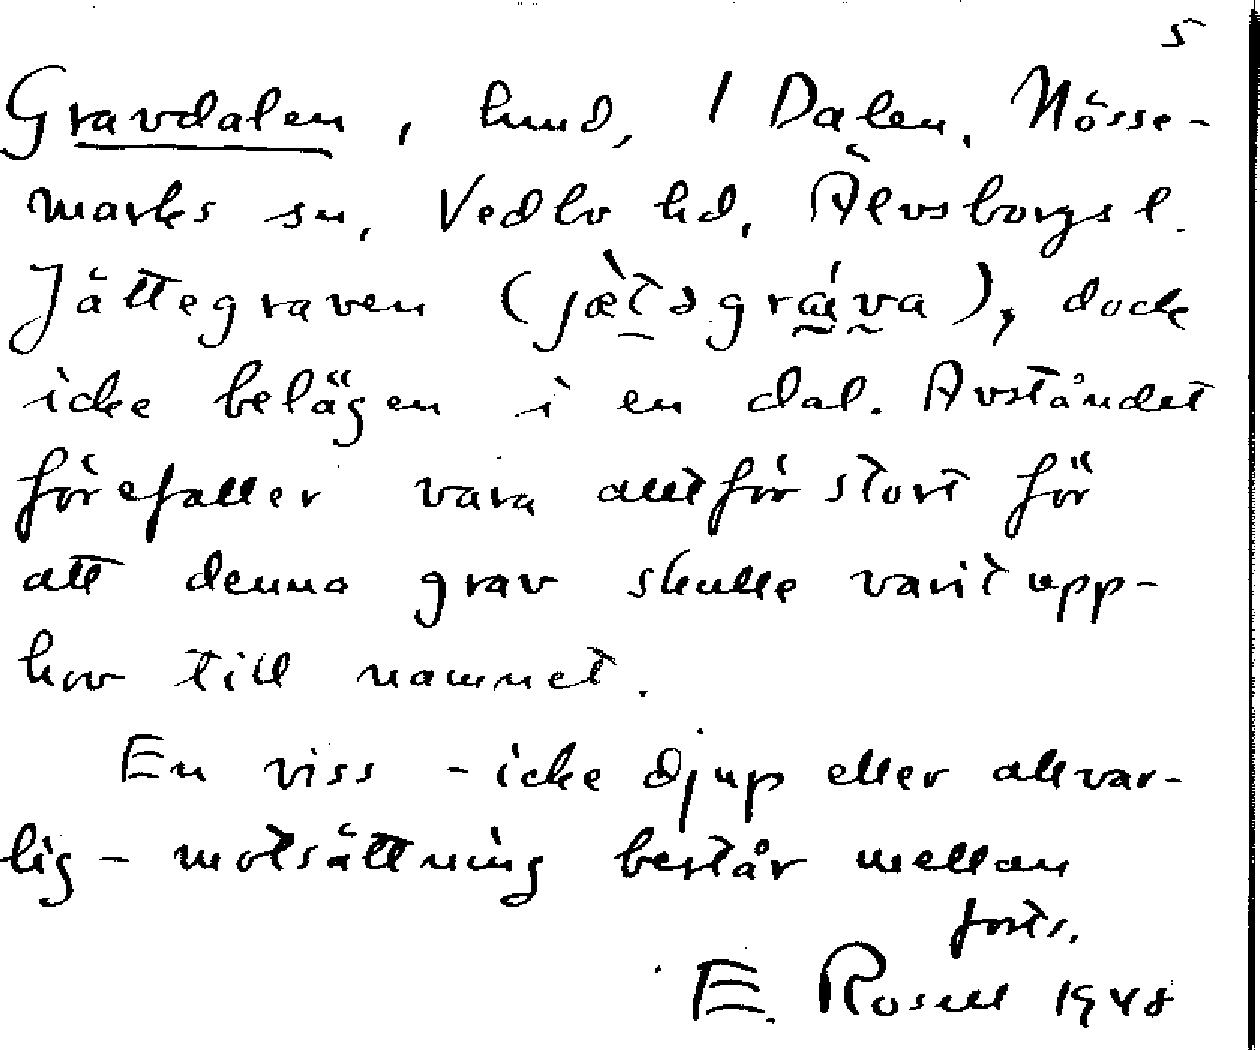 5
Gravdalen, hmd, 1 Dalen, Nösse-
marks sn, Vedbo hd, Älvsborgs l.
Jättegraven (jæ̀təgráva), dock
icke belägen i en dal. Avståndet
förefaller vara alltför stort för
att denna grav skulle varit upp-
hov till namnet.
En viss - icke djup eller allvar-
lig - motsättning består mellan
forts.
E. Rosell 1948